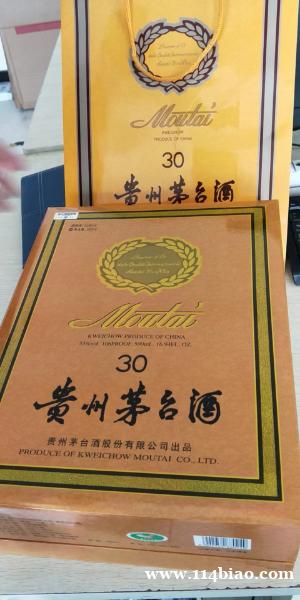 Moutai
PRODUCE OF CHINA
30
贵州茅台酒
Moutai
KWEICHOW PRODUCE OF CHINA
53%vol. 106PROOF 500mL 16.94FL. OZ.
30
贵州茅台酒
贵州茅台酒股份有限公司出品
PRODUCE OF KWEICHOW MOUTAI CO., LTD.
www.114biao.com